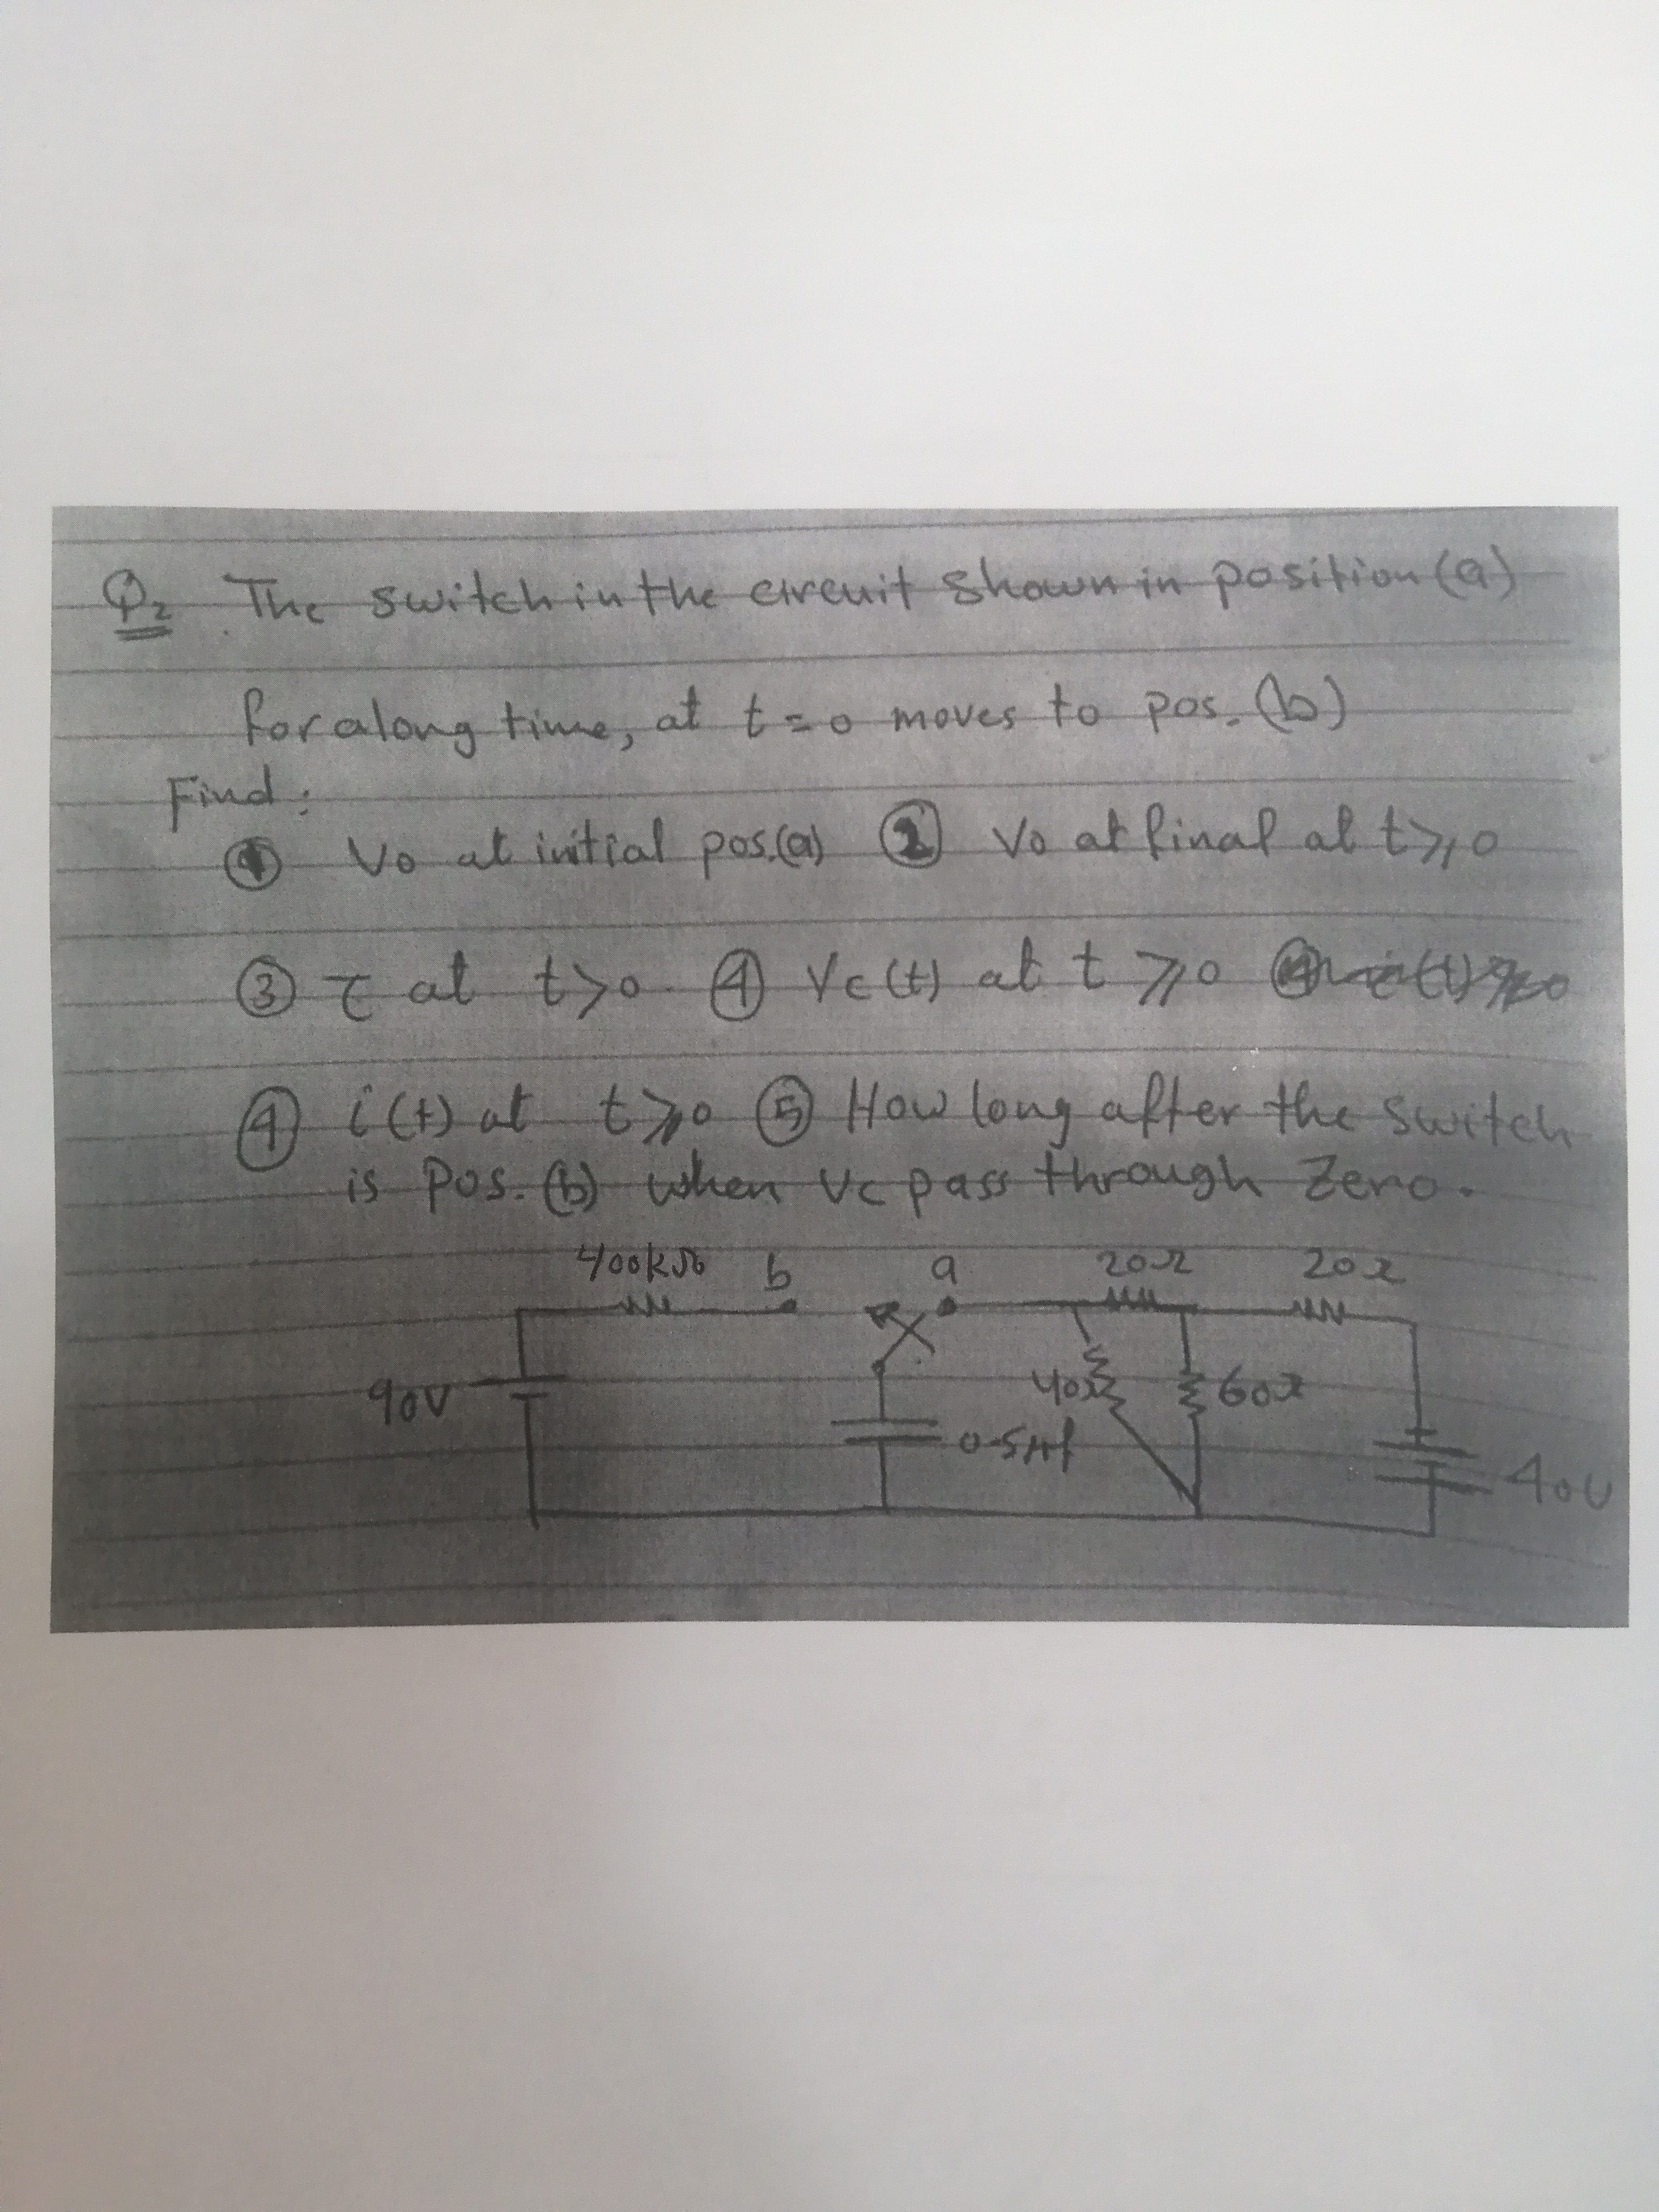 Q2 The switch in the circuit shown in position (a)
for along time, at t=0 moves to pos. (b)
Find:
① Vo at initial pos.(a) ② Vo at final at t≥0
③ τ at t>0. ④ Vc(t) at t≥0
④ i(t) at t≥0 ⑤ How long after the switch
is pos. (b) when Vc pass through Zero.
400kΩ b a 20Ω 20Ω
90V 40Ω 60Ω
0.5μf
40V